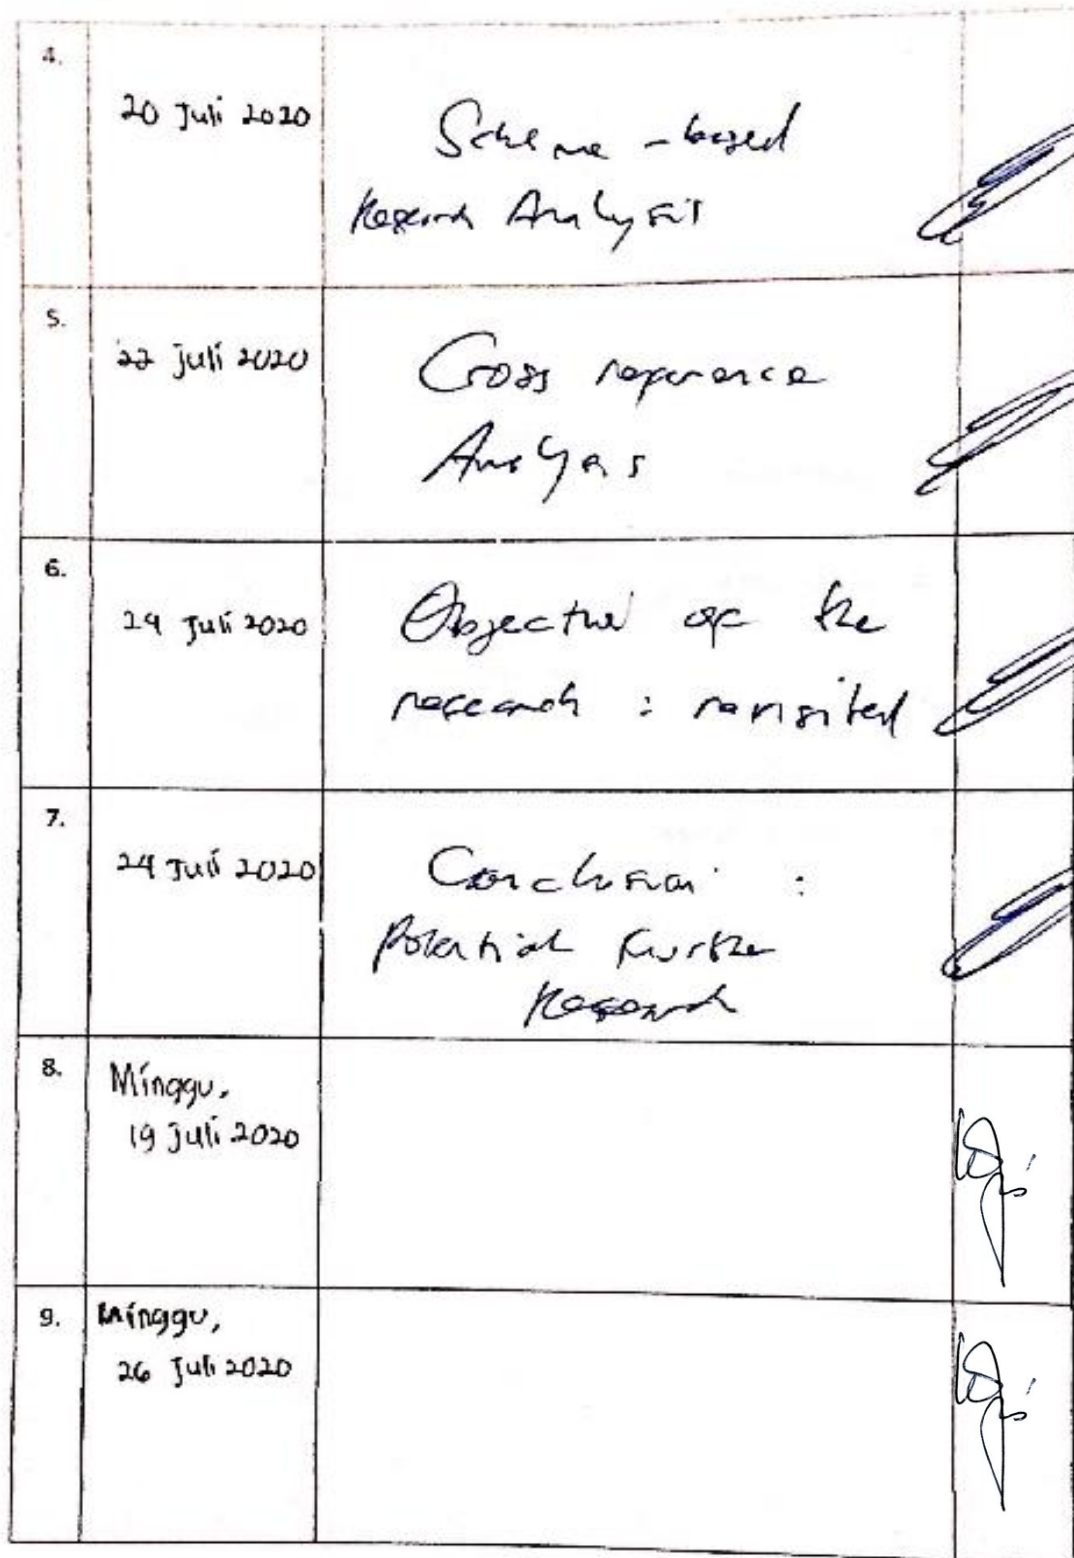 4.
20 Juli 2020
Scheme - based
Research Analysis
5.
22 Juli 2020
Cross reference
Analysis
6.
24 Juli 2020
Objective of the
research : revisited
7.
24 Juli 2020
Conclusion :
Potential Further
Research
8.
Minggu,
19 Juli 2020
9.
Minggu,
26 Juli 2020